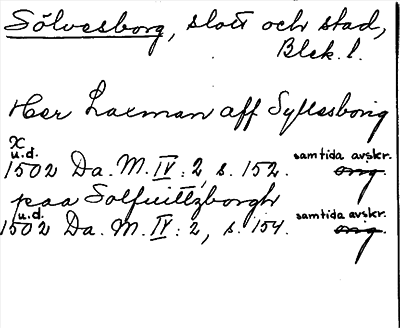 Sölvesborg, slott och stad,
Blek. l.
Her Laxman aff Syluesborig
X
u.d. samtida avskr.
1502 Da. M. IV: 2, s. 152. orig.
paa Solfuittzborgh
u.d. samtida avskr.
1502 Da. M. IV: 2, s. 154. orig.